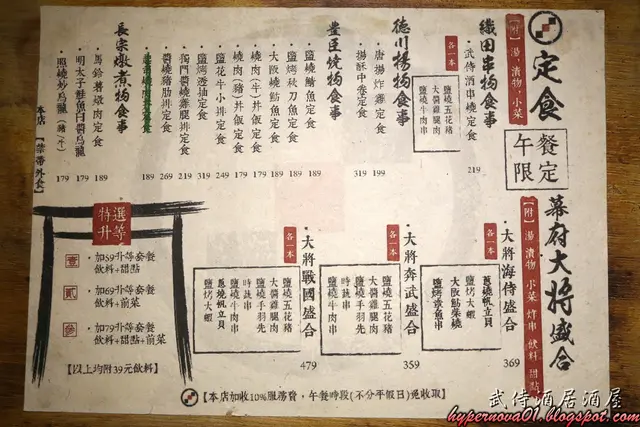 定食
【附】湯 漬物 小菜
午餐
限定
織田串物食事
・武侍酒串燒定食
219
各一本
鹽燒五花豬
大醬雞腿肉
鹽燒牛肉串
德川揚物食事
・唐揚炸雞定食
199
・揚酥中卷定食
319
豊臣燒物食事
・鹽燒鯖魚定食
189
・鹽烤秋刀魚定食
189
・大阪燒魚定食
179
・燒肉(牛)丼飯定食
179
・燒肉(豬)丼飯定食
179
・鹽花牛小排定食
249
・鹽烤透抽定食
319
・獨門醬燒雞腿排定食
219
・醬燒豬肋排定食
269
189
長宗燉煮物食事
・馬鈴薯燉肉定食
189
・明太子鮭魚白醬烏龍
179
・照燒炒烏龍(豬/牛)
179
本店【禁帶外食】
幕府大將盛合
【附】湯 漬物 小菜 炸串 飲料 甜點
・大將海侍盛合
369
各一本
蔥燒帆立貝
大阪筋柴燒
鹽烤章魚串
・大將奔武盛合
359
各一本
鹽燒五花豬
大醬雞腿肉
鹽燒手羽先
時蔬串
鹽燒牛肉串
・大將戰國盛合
479
各一本
鹽燒五花豬
大醬雞腿肉
鹽燒手羽先
鹽燒牛肉串
時蔬串
蔥燒帆立貝
鹽烤大蝦
特選
升等
壹 ・加59升等套餐
飲料+甜點
貳 ・加69升等套餐
飲料+前菜
參 ・加79升等套餐
飲料+甜點+前菜
【以上均附39元飲料】
【本店加收10%服務費,午餐時段(不分平假日)免收取】
武侍酒居酒屋
hypernova01.blogspot.com